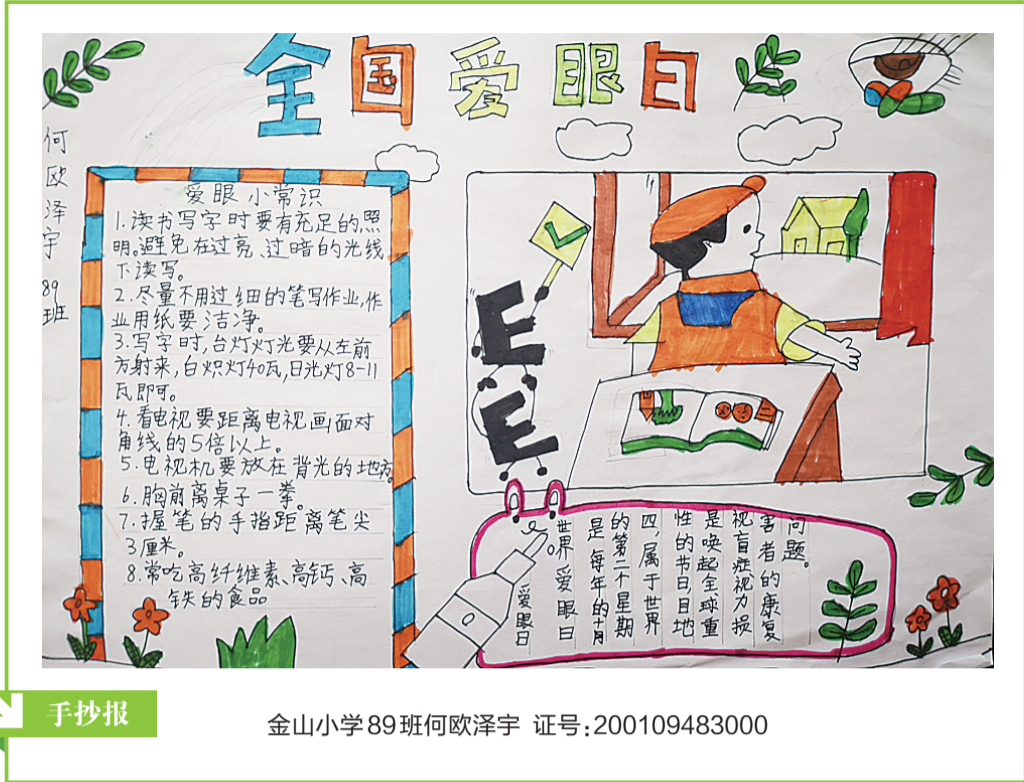 全国爱眼日
何欧泽宇 89班
爱眼小常识
1.读书写字时要有充足的,照
明。避免在过亮、过暗的光线
下读写。
2.尽量不用过细的笔写作业,作
业用纸要洁净。
3.写字时,台灯灯光要从左前
方射来,白炽灯40瓦,日光灯8-11
瓦即可。
4.看电视要距离电视画面对
角线的5倍以上。
5.电视机要放在背光的地方。
6.胸前离桌子一拳。
7.握笔的手指距离笔尖
3厘米。
8.常吃高纤维素、高钙、高
铁的食品
E
E
爱眼日
世界爱眼日
是每年的十月
的第二个星期
四,属于世界
性的节日,目地
是唤起全球重
视盲症视力损
害者的康复
问题。
手抄报
金山小学89班何欧泽宇 证号:200109483000